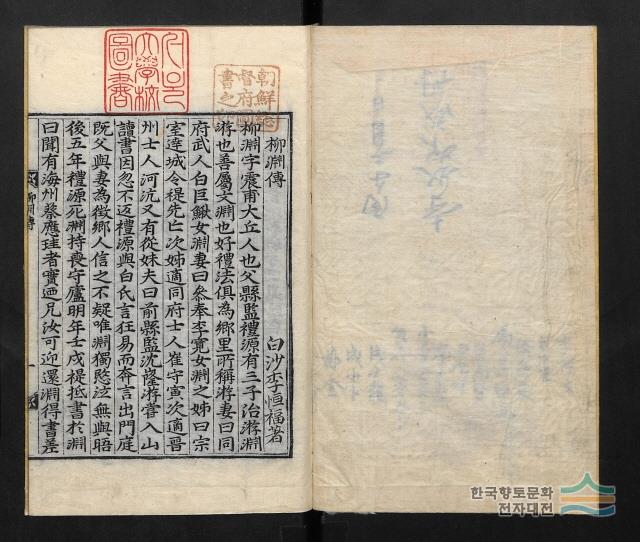 柳淵傳
白沙李恒福著
柳淵字震甫大丘人也父縣監禮源有三子治游淵
游也善屬文淵也好禮法俱為鄉里所稱游妻曰同
府武人白巨鰍女淵妻曰叅奉李寬女淵之姊曰宗
室達城令禔先亡次姊適同府士人崔守寅次適晉
州士人河沆又有從妹夫曰前縣監沈㠎游嘗入山
讀書因忽不返禮源與白氏言狂易而奔言出門庭
既父與妻為徵鄉人信之不疑唯淵獨愍泣無與晤
後五年禮源死淵持喪守廬明年壬戌禔抵書於淵
曰聞有海州蔡應珪者實迺兄汝可迎還淵得書差
柳淵傳
一
圖書
大學校
朝鮮總
督府圖
書之
한국향토문화
전자대전